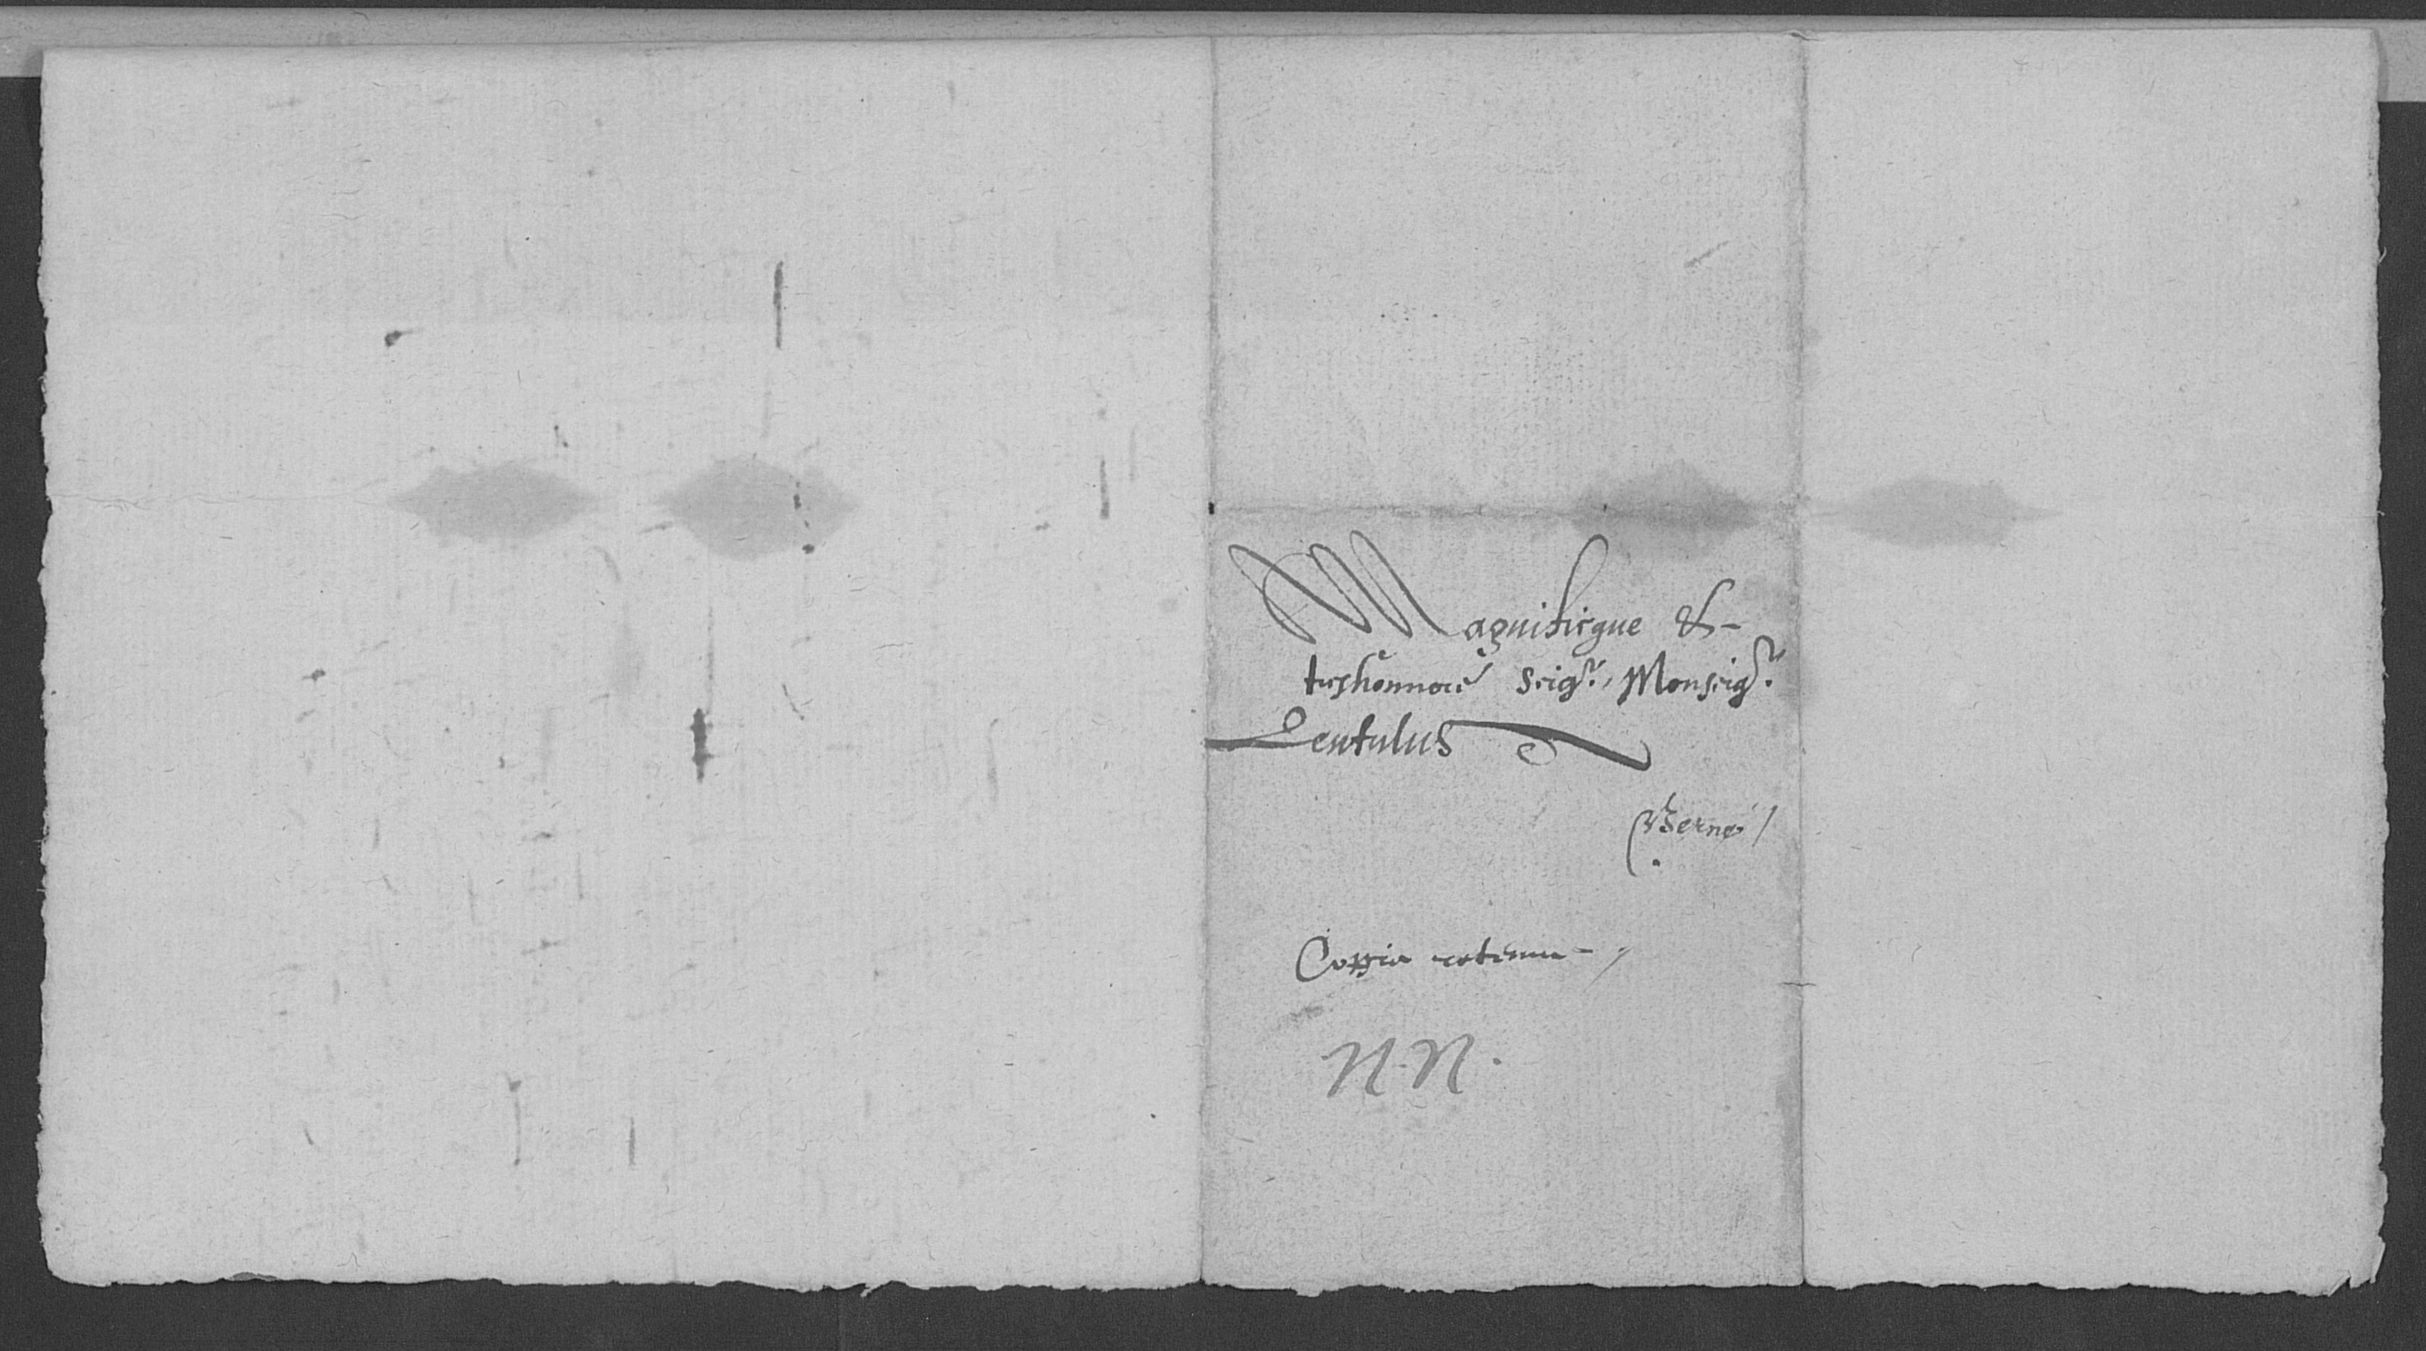 Magnifique &-
treshonnoré Seigr., Monseigr.
Lentulus
Berne /
Coppia
N. N.